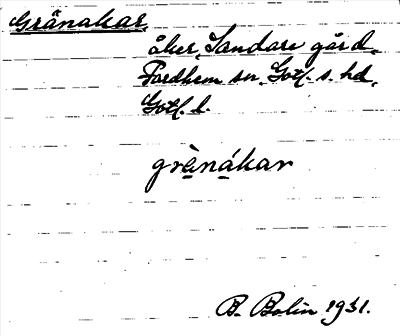 Gränakar,
åker, Sandare gård,
Fardhem sn. Gotl. s. hd,
Gotl. l.
gränákar
B. Bolin 1931.